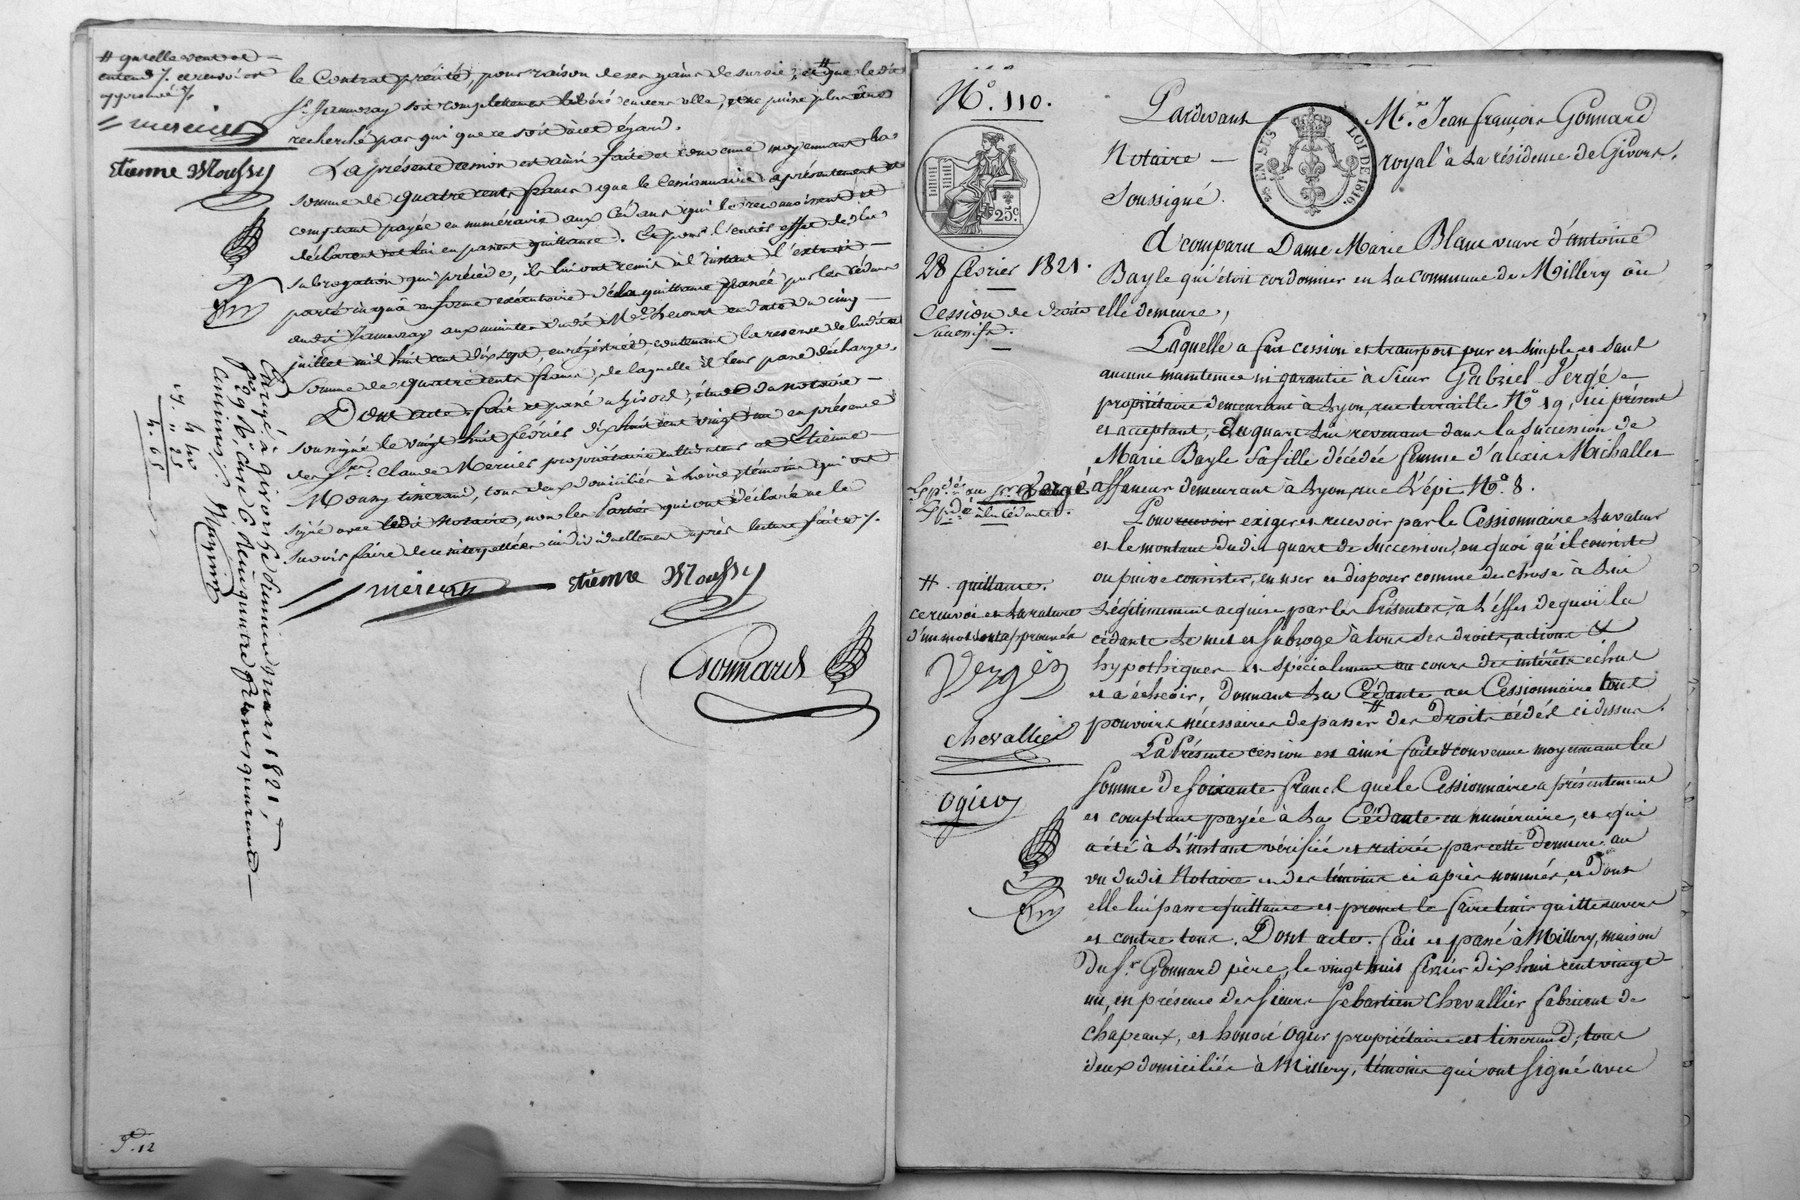 # qu'elle vend et
entend /. ce renvoi est
approuvé /.
mercier
Etienne Moussy
le Contrat précité, pour raison de ses gains de survie, et # que le dit
Sr. Jeanneray soit complettement libéré envers elle, et ne puisse plus être
recherché par qui que ce soit à cet égard.
La présente cession est ainsi faite et convenue moyennant la
somme de quatre cents francs que le Cessionnaire a présentement et
comptant payée en numéraire aux Cédants qui le reconnoissent et
déclarent et lui en passent quittance. Et pour l'entier effet de la
subrogation qui précède, ils lui ont remis à l'instant l'extrait
parte in quâ en forme exécutoire de la quittance passée par les Cédans
audit Jeanneray aux minutes dudit Me. Lecourt en date du cinq
juillet mil huit cent dix sept, enregistrée, contenant la reserve de ladite
somme de quatre cents francs, de laquelle il leur passe décharge.
Dont acte, fait et passé à Givors, étude du notaire
soussigné le vingt huit février dix huit cent vingt un en présence
des Srs. Claude Mercier propriétaire cultivateur et Etienne
Moussy tisserand, tous deux domiciliés à Loire, témoins qui ont
signé avec ledit Notaire, non les Parties qui ont déclaré ne le
savoir faire de ce interpellées individuellement après lecture faite /.
mercier Etienne Moussy
Gonnard
Enregé à givors le dernier mars 1821,
fº 96 Rº, case 6 Reçu quatre francs quarante
centimes /. Maynard
4. 40
" 25
4. 65
P. 12
Nº. 110.
28 février 1821.
Cession de droits
successifs.
EN SUS
LOI DE 1816.
25c
Pardevant Me. Jean françois Gonnard
Notaire royal à la résidence de Givors,
Soussigné.
A comparu Dame Marie Blanc veuve d'antoine
Bayle qui étoit cordonnier en la commune de Millery où
elle demeure,
Laquelle a fait cession et transport pur et simple et sans
aucune maintenue ni garantie à Sieur Gabriel Vergé
propriétaire demeurant à Lyon, rue terraille Nº 19, ici présent
et acceptant, du quart lui revenant dans la succession de
Marie Bayle sa fille décédée femme d'alexis Michallet
affaneur demeurant à Lyon, rue L'épi Nº 8.
Expédée. au Sr. Vergé
Expdée. à la Cédante.
Pour recevoir exiger et recevoir par le Cessionnaire la valeur
et le montant dudit quart de succession, en quoi qu'il consiste
ou puisse consister, en user et disposer comme de chose à lui
légitimement acquise par les Présentes, à l'effet de quoi la
cédante le met et subroge à tous ses droits, actions et
hypothèques et spécialement au cours des intérêts échus
et à écheoir, donnant la Cédante au Cessionnaire tous
pouvoirs nécessaires de passer # des droits cédés ci dessus.
# quittance.
ce renvoi et la rature
d'un mot sont approuvés
Vergé
Chevallier
Ogier
La Présente cession est ainsi faite & convenue moyennant la
somme de soixante francs que le Cessionnaire a présentement
et comptant payée à la Cédante en numéraire, et qui
a été à l'instant vérifiée et retirée par cette dernière au
vu dudit Notaire et des témoins ci après nommés, et dont
elle lui passe quittance et promet le faire tenir quitte envers
et contre tous. Dont acte. fait et passé à Millery, maison
du Sr. Gonnard père, le vingt huit février dix huit cent vingt
un, en présence des sieurs Sebastien Chevallier fabricant de
chapeaux, et honoré Ogier propriétaire et tisserand, tous
deux domiciliés à Millery, témoins qui ont signé avec